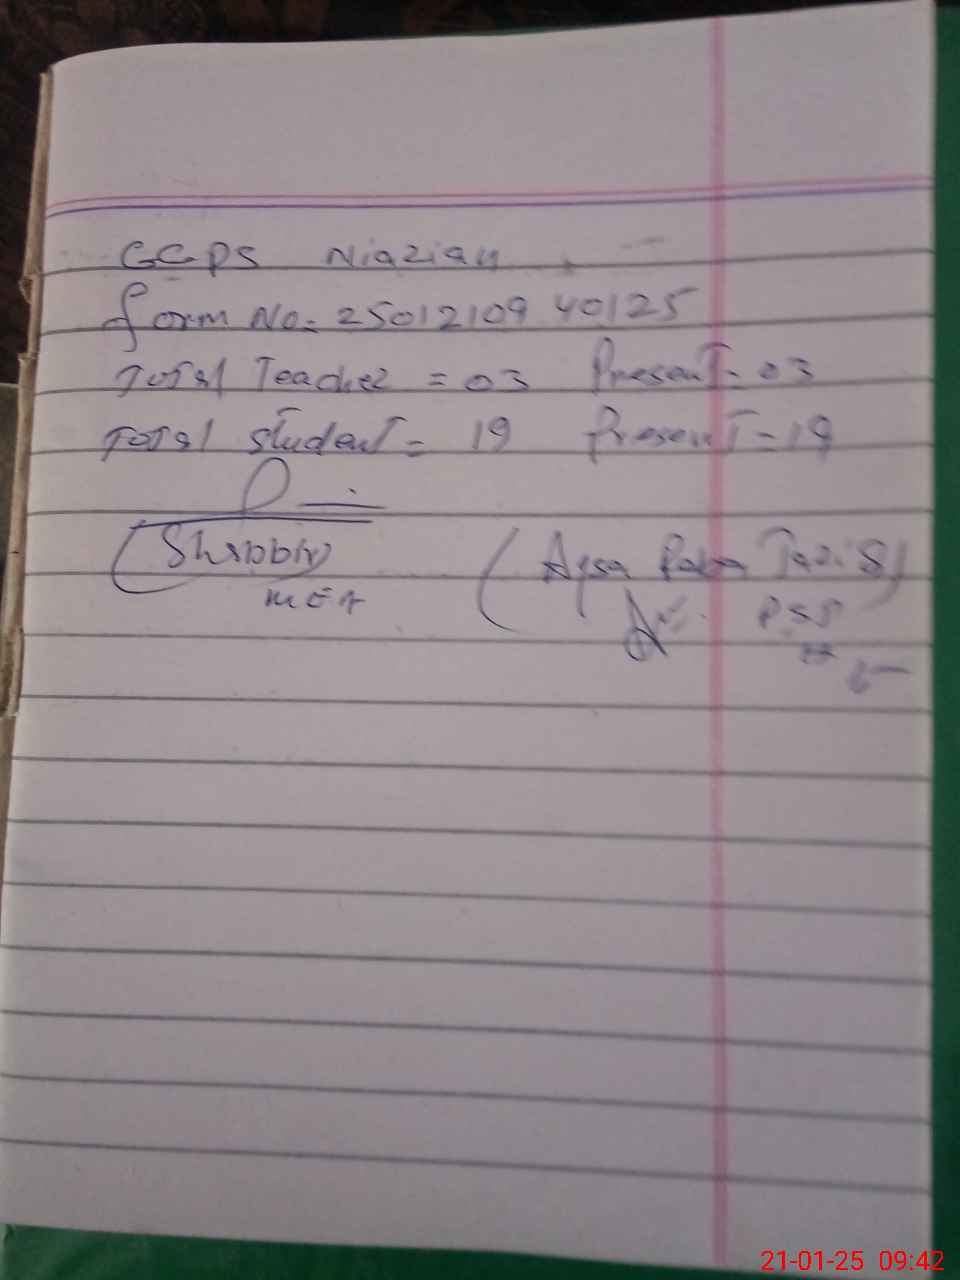 GGPS Niazian
form No= 25012109 40125
Total Teacher = 03 Present = 03
Total student = 19 Present = 19
(Shabbir)
MEA
(Aqsa Tazi S)
PST
21-01-25 09:42